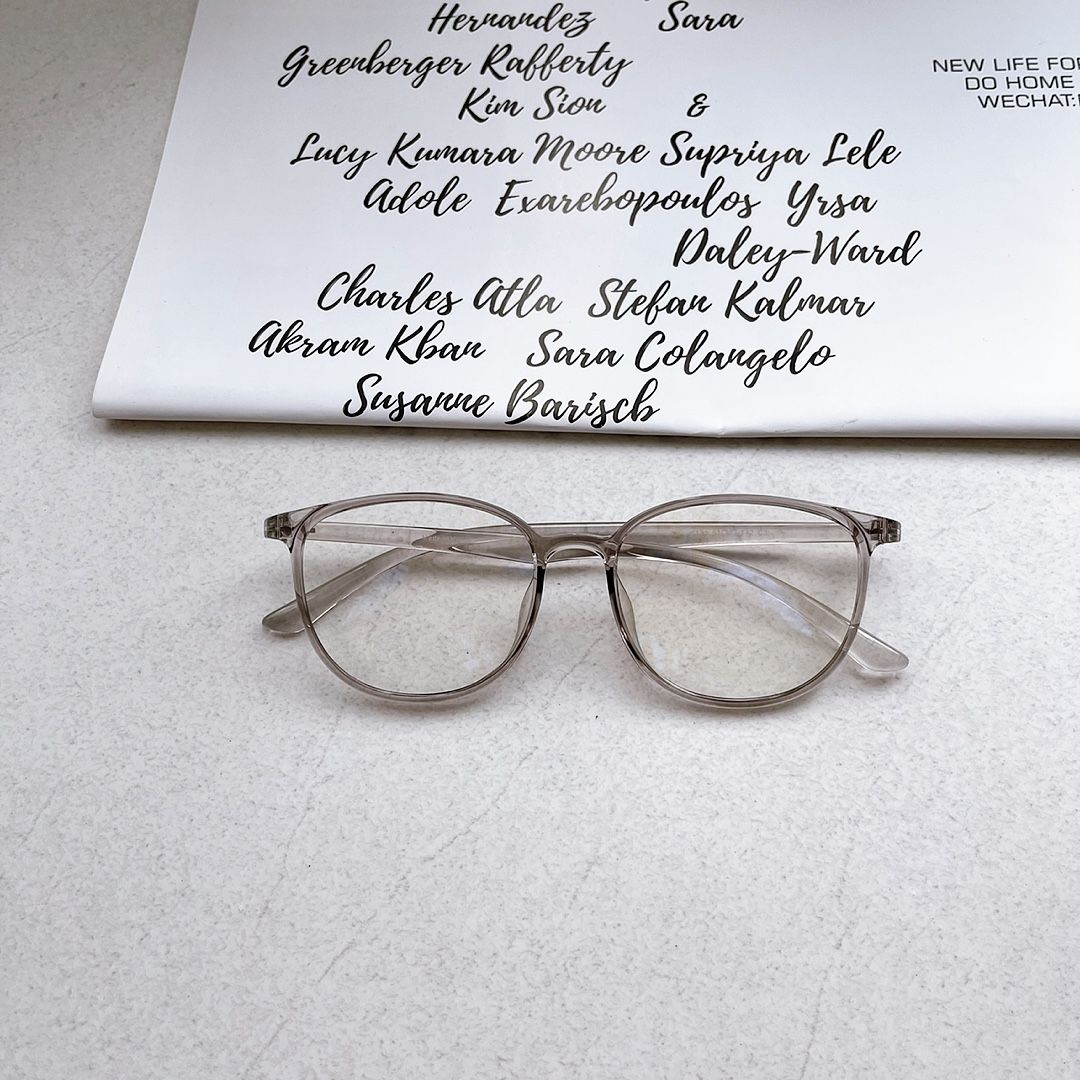 Hernandez Sara
Greenberger Rafferty
Kim Sion &
Lucy Kumara Moore Supriya Lele
Adole Exarebopoulos Yrsa
Daley-Ward
Charles Atla Stefan Kalmar
Akram Kban Sara Colangelo
Susanne Bariscb
NEW LIFE FOR
DO HOME
WECHAT: